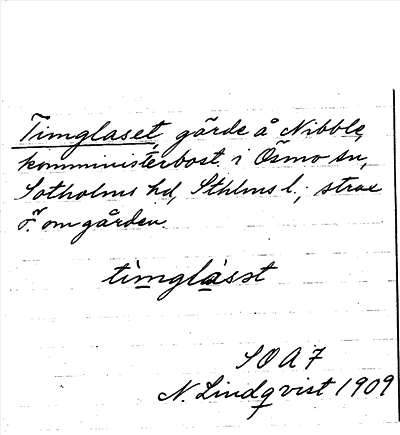 Timglaset, gärde å Nibble,
komministerbost. i Ösmo sn,
Sotholms hd, Sthlms l.; strax
ö. om gården.
tìmglàsst
SOA 7
N. Lindqvist 1909